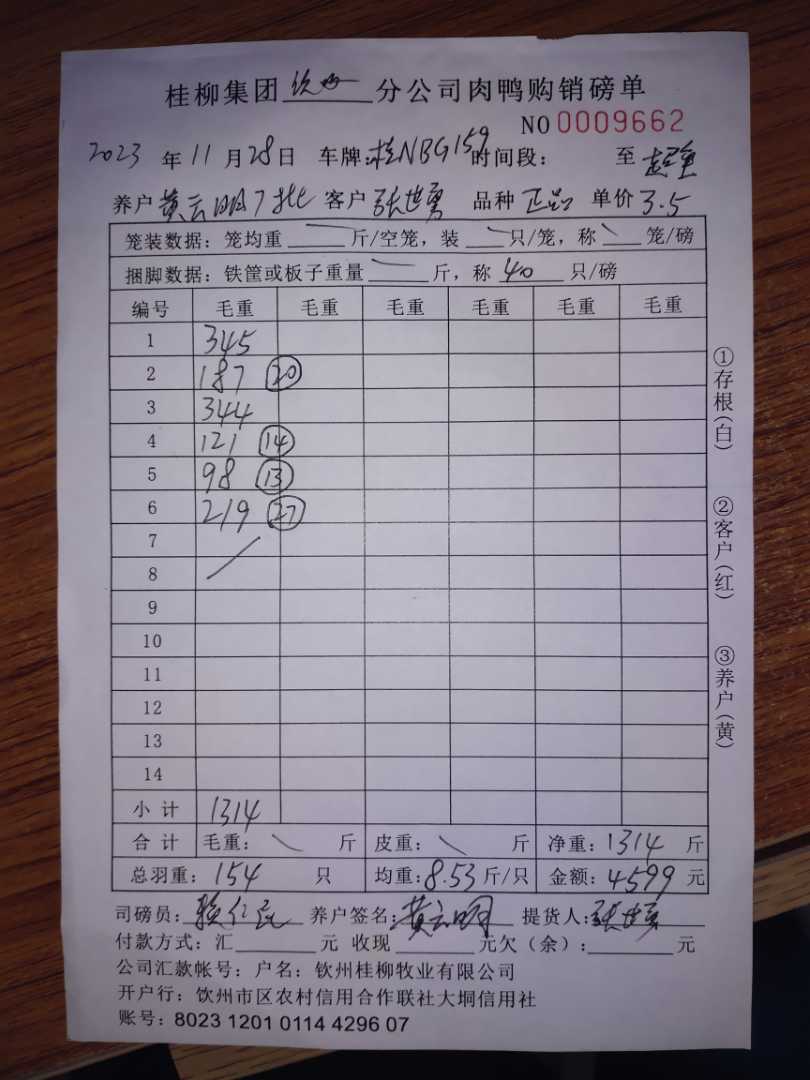 桂柳集团钦州分公司肉鸭购销磅单
NO 0009662
2023年11月28日 车牌:桂NBG159 时间段: 至
养户黄云明7批 客户张世勇 品种正品 单价3.5
笼装数据: 笼均重 斤/空笼, 装 只/笼, 称 笼/磅
捆脚数据: 铁筐或板子重量 斤, 称 40 只/磅
编号 毛重 毛重 毛重 毛重 毛重 毛重
1 345
2 187 ⑳
3 344
4 121 ⑭
5 98 ⑬
6 219 ㉗
7
8
9
10
11
12
13
14
小计 1314
合计 毛重: 斤 皮重: 斤 净重: 1314 斤
总羽重: 154 只 均重: 8.53 斤/只 金额: 4599 元
司磅员: 养户签名: 黄云明 提货人: 张世勇
付款方式: 汇 元 收现 元欠(余): 元
公司汇款帐号: 户名: 钦州桂柳牧业有限公司
开户行: 钦州市区农村信用合作联社大垌信用社
账号: 8023 1201 0114 4296 07
①存根(白)
②客户(红)
③养户(黄)